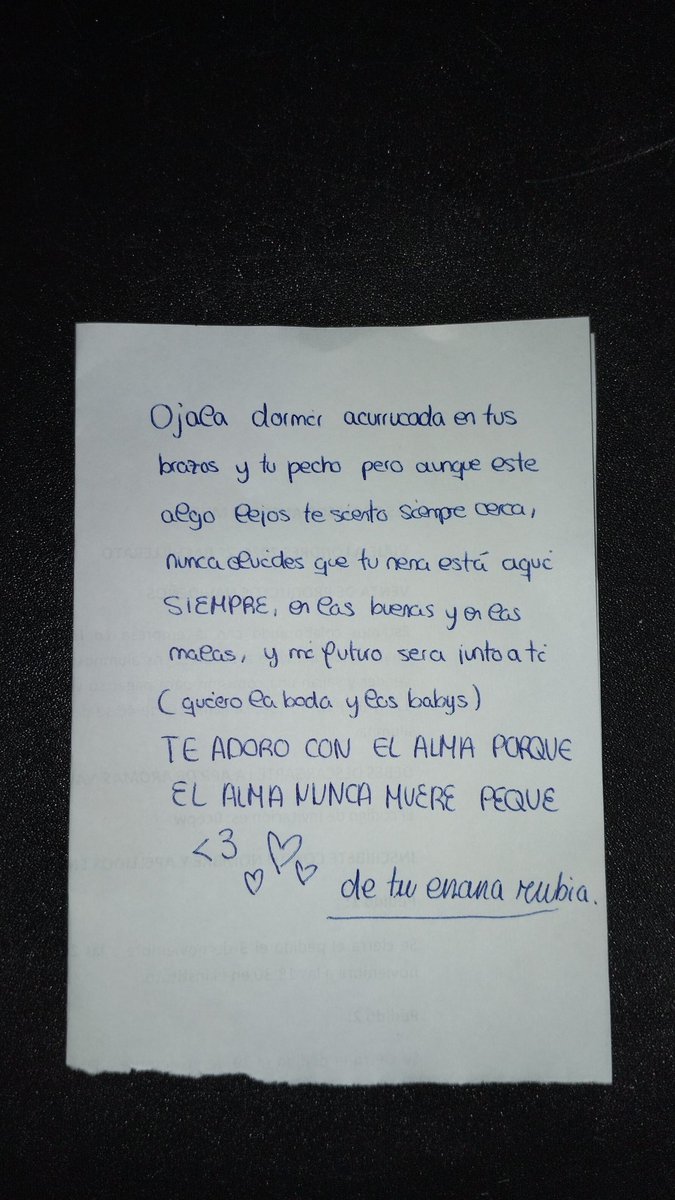 Ojala dormir acurrucada en tus
brazos y tu pecho pero aunque este
algo lejos te siento siempre cerca,
nunca olvides que tu nena está aqui
SIEMPRE, en las buenas y en las
malas, y mi futuro sera junto a ti
(quiero la boda y los babys)
TE ADORO CON EL ALMA PORQUE
EL ALMA NUNCA MUERE PEQUE
<3
de tu enana rubia.